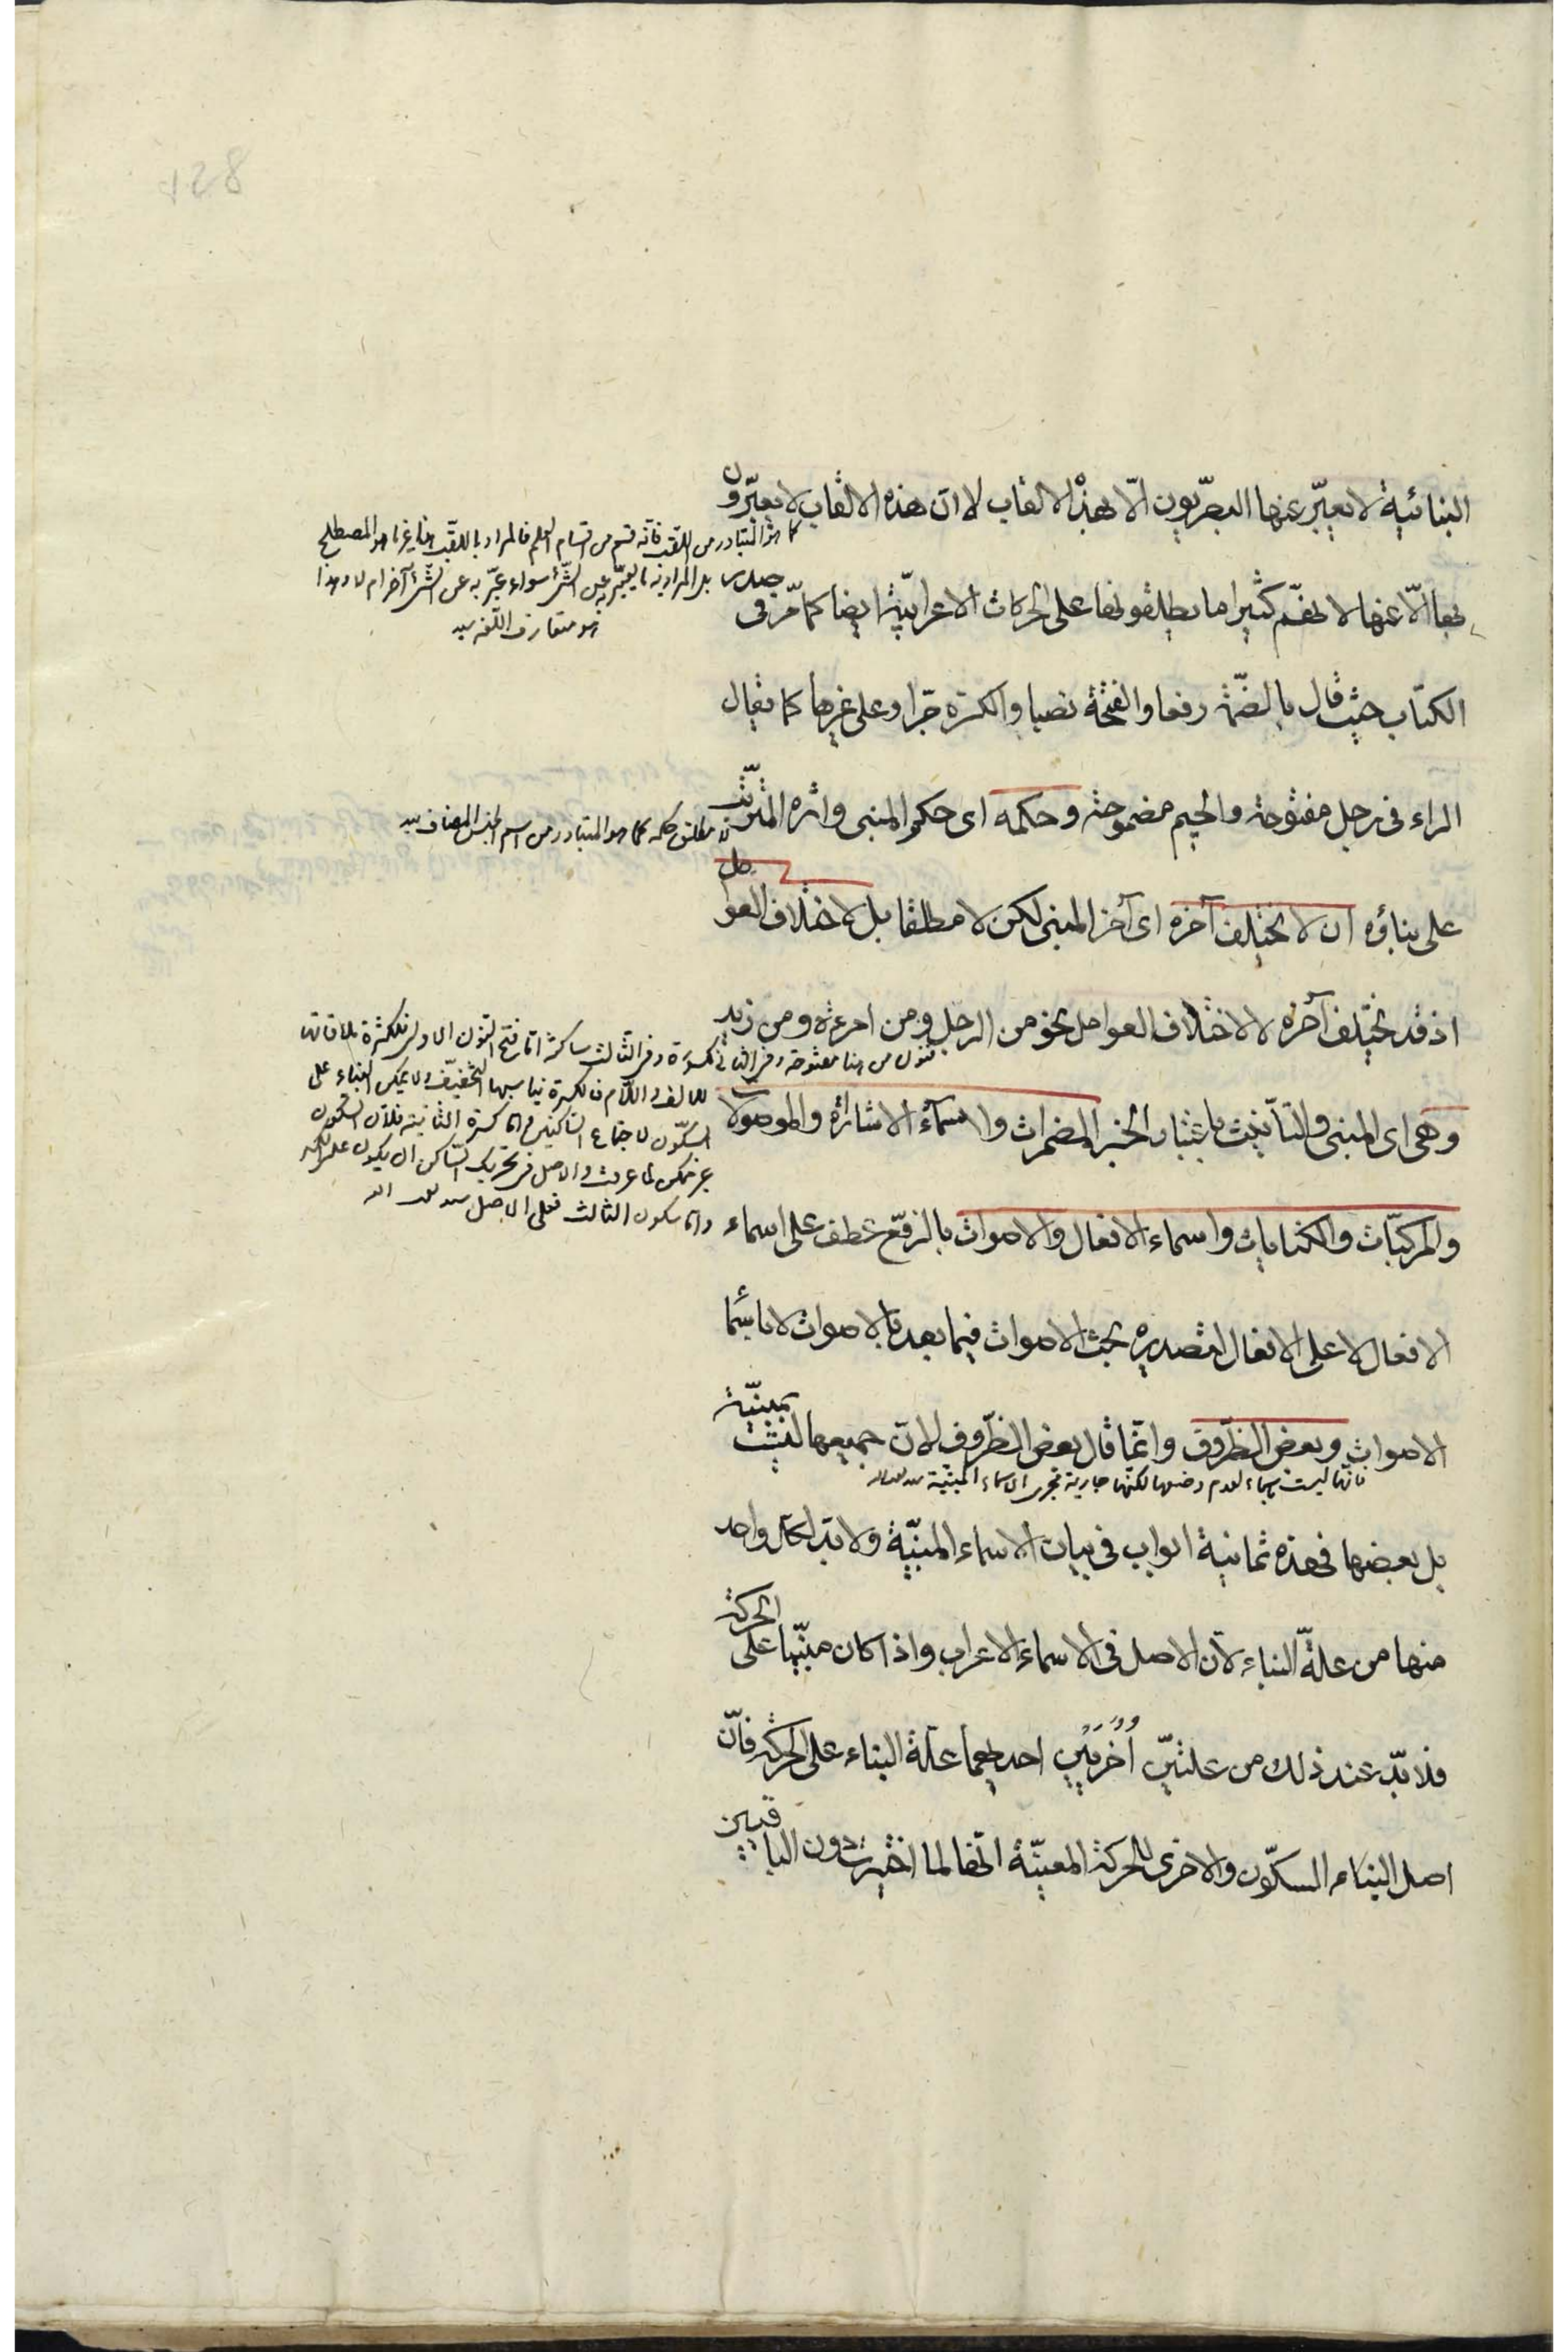 البنائية لا يعبّر عنها البصريون الّا بهذه الالقاب لا ان هذه الالقاب لا يعبّرون
بها الّا عنها لانهم كثيرا ما يطلقونها على الحركات الاعرابيّة ايضا كما مرّ فى صدر
الكتاب حيث قال بالضمّة رفعا والفتحة نصبا والكسرة جرّا وعلى غيرها كما يقال
الراء فى رجل مفتوحة والجيم مضمومة وحكمه اى حكم المبنى واثره المترتّب
على بناؤه ان لا يختلف آخره اى آخر المبنى لكن لا مطلقا بل لاختلاف العوامل
اذ قد يختلف آخره لا لاختلاف العوامل نحو من الرجل ومن امرءة ومن زيد
وهى اى المبنى والتأنيث باعتبار الخبر المضمرات واسماء الاشارة والموصولات
والمركّبات والكنايات واسماء الافعال والاصوات بالرفع عطف على اسماء
الافعال لا على الافعال لتصديره بحث الاصوات فيما بعد بالاصوات لا باسماء
الاصوات وبعض الظروف وانّما قال بعض الظّروف لانّ جميعها ليست بمبنيّة
بل بعضها فهذه ثمانية ابواب فى بيان الاسماء المبنيّة ولا بدّ لكل واحد
منها من علّة البناء لانّ الاصل فى الاسماء الاعراب واذا كان مبنيّا على الحركة
فلا بدّ عند ذلك من علتين أُخريين احديهما علّة البناء على الحركة فانّ
اصل البناء السكون والاخرى للحركة المعيّنة انّها لما اختيرت دون الباقيين
كما هو المتبادر من اللقب فانّه قسم من اقسام العلم فالمراد باللقب هنا غير ما هو المصطلح
بل المراد به ما يعبّر به عن الشّئ سواء عبّر به عن الشّئ آخر ام لا وهذا
هو متعارف اللّغة
لا مطلق حكمه كما هو المتبادر من اسم الجنس المضاف
فنون من هنا مفتوحة وفى الثانى مكسورة وفى الثالث ساكنة امّا فتح النون الاول فلكثرة ملاقاتها
للالف واللام فالكثرة يناسبها التخفيف ولا يمكن البناء على
السكّون لاجتماع الساكنين وامّا كسرة الثانية فلانّ السكون
غير ممكن لما عرفت والاصل فى تحريك السّاكن ان يكون على الكسر
وامّا سكون الثالث فعلى الاصل
فانّها ليست باسماء لعدم وضعها لكنّها جارية مجرى الاسماء المبنيّة